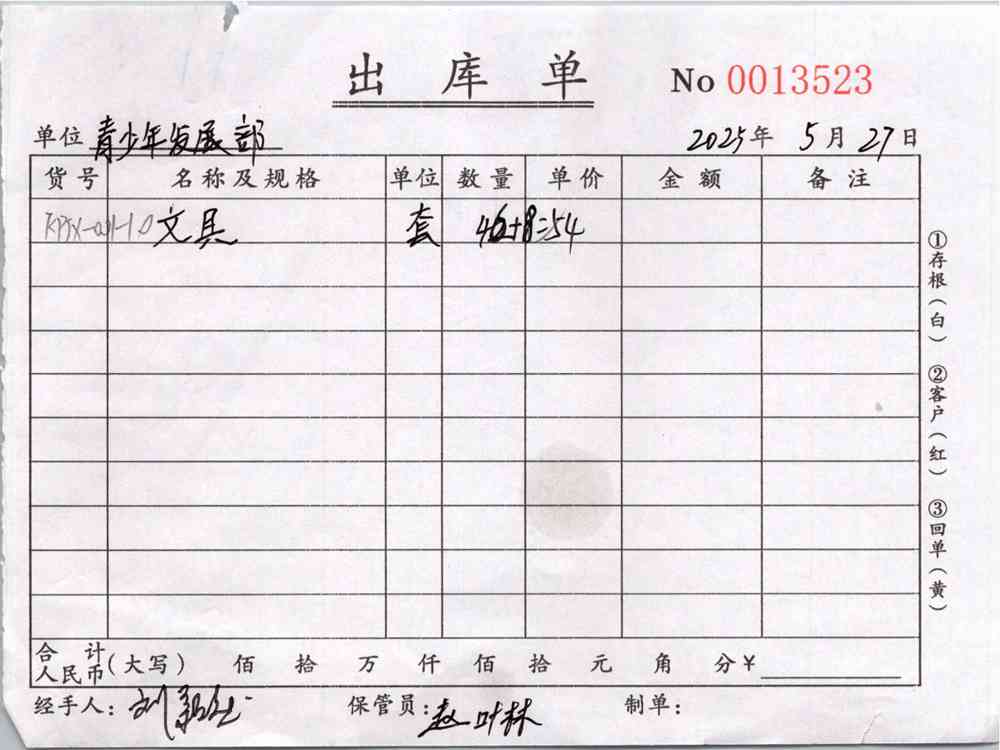 出库单 No 0013523
单位 青少年发展部 2025年 5月 27日
货号 名称及规格 单位 数量 单价 金额 备注
文具 套 46+8=54
合计人民币(大写) 佰 拾 万 仟 佰 拾 元 角 分¥
经手人: 刘 保管员: 赵叶林 制单:
①存根(白) ②客户(红) ③回单(黄)